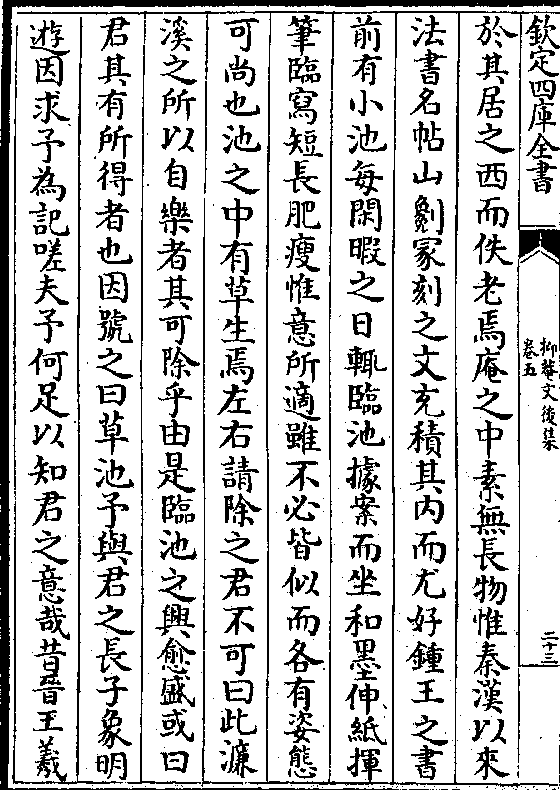 欽定四庫全書
抑菴文後集
卷五
二十三
於其居之西而佚老焉庵之中素無長物惟秦漢以來
法書名帖山劖冢刻之文充積其内而尤好鍾王之書
前有小池每閑暇之日輙臨池據案而坐和墨伸紙揮
筆臨寫短長肥瘦惟意所適雖不必皆似而各有姿態
可尚也池之中有草生焉左右請除之君不可曰此濂
溪之所以自樂者其可除乎由是臨池之興愈盛或曰
君其有所得者也因號之曰草池予與君之長子象明
遊因求予為記嗟夫予何足以知君之意哉昔晉王羲